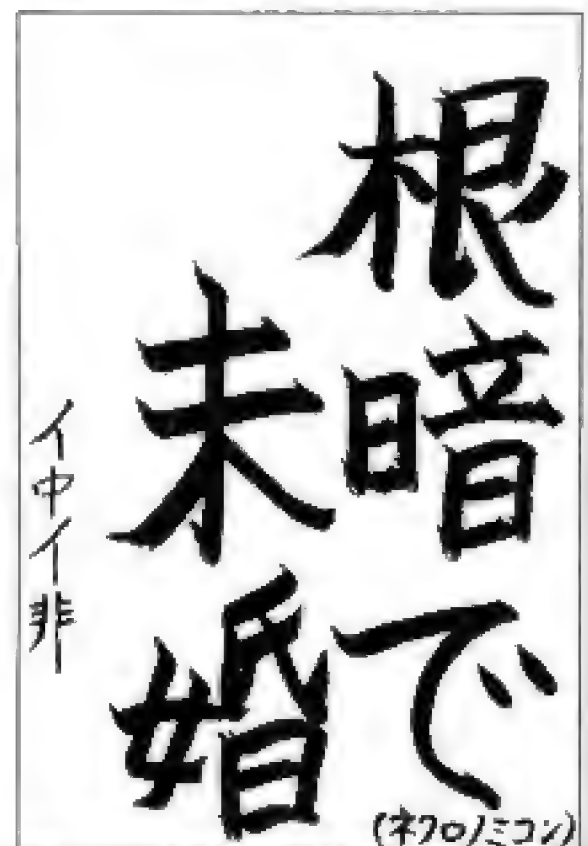 根暗で
未婚
(ネクロノミコン)
イ中イ非